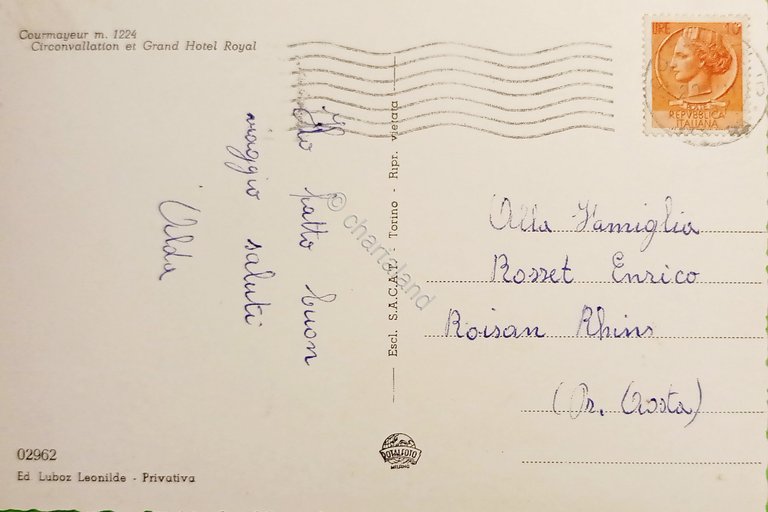 Courmayeur m. 1224
Circonvallation et Grand Hotel Royal
Ho fatto buon
viaggio saluti
Alda
02962
Ed Luboz Leonilde - Privativa
Escl. S.A.C.A.T. - Torino - Ripr. vietata
ROTALFOTO
MILANO
LIRE 10
REPVBBLICA
ITALIANA
Alla Famiglia
Rosset Enrico
Roisan Rhins
(Pr. Aosta)
© chartaland